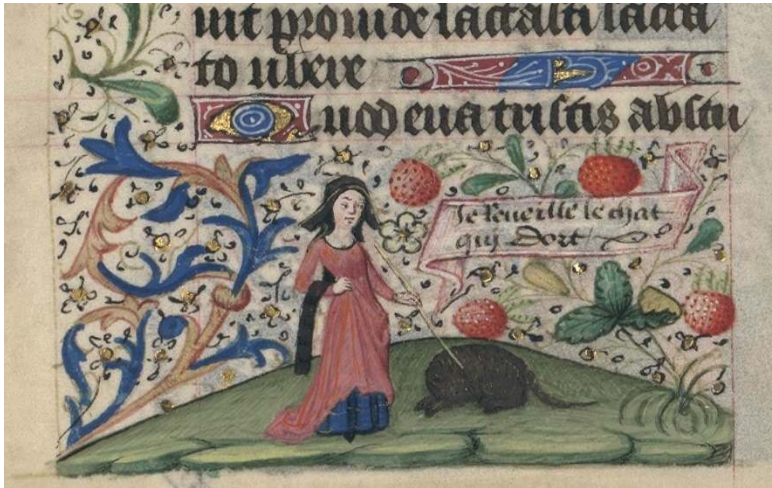 uit prouide lactasti sacra
to ubere
Quod eua tristis abstu
Je Reueille le chat
qui Dort